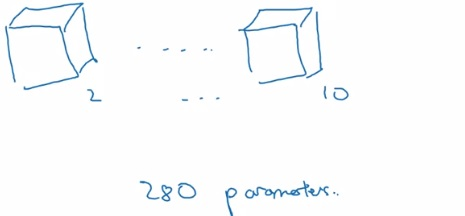 2 ... 10
280 parameters.